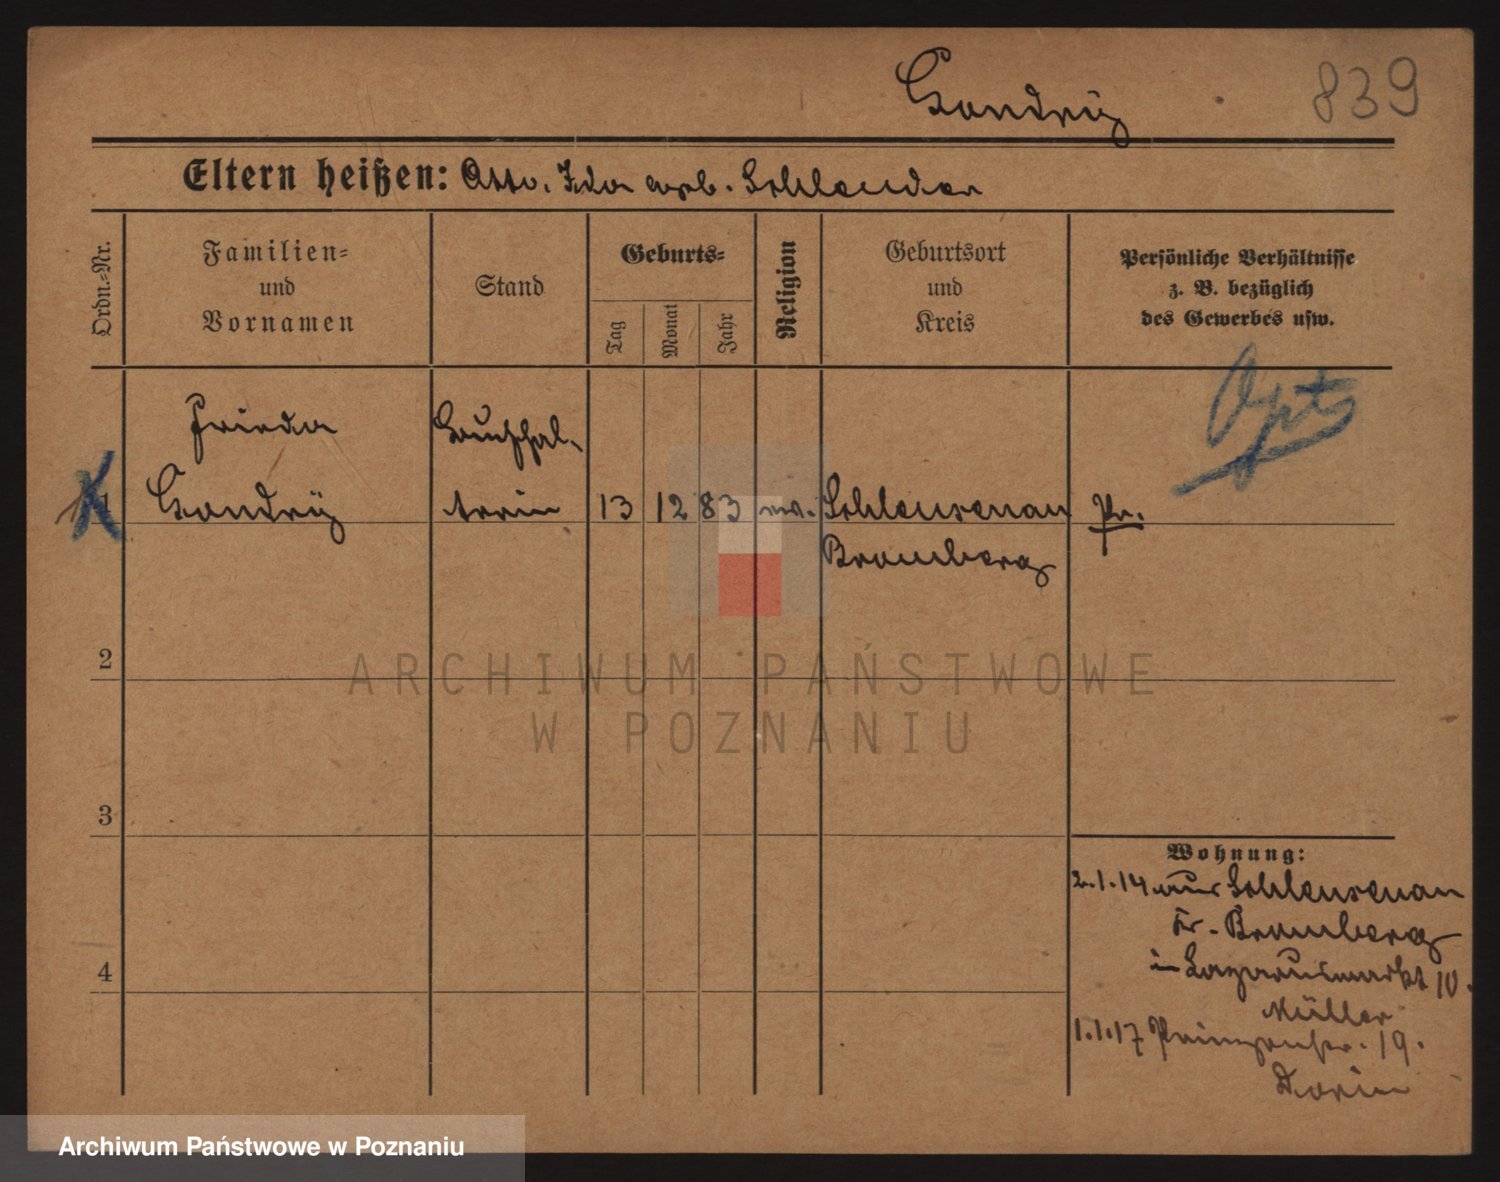 839
Eltern heißen: Otto, Ida geb. Schlender
Ordn.-Nr.
Familien-
und
Vornamen
Stand
Geburts-
Tag
Monat
Jahr
Religion
Geburtsort
und
Kreis
Persönliche Verhältnisse
z. B. bezüglich
des Gewerbes usw.
Frieda
1
13 12 83 ev. Schleusenau Pr.
Bromberg
2
ARCHIWUM PAŃSTWOWE
W POZNANIU
3
4
Wohnung:
2.1.14 aus Schleusenau
Kr. Bromberg
in Lazarusmarkt 10.
Müller
1.1.17 Prinzenstr. 19.
Archiwum Państwowe w Poznaniu